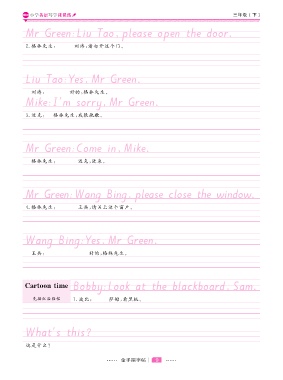 小学英语写字课课练
三年级（下）
Mr Green: Liu Tao, please open the door.
2. 格林先生： 刘涛，请打开这个门。
Liu Tao: Yes, Mr Green.
刘涛： 好的，格林先生。
Mike: I'm sorry, Mr Green.
3. 迈克： 格林先生，我很抱歉。
Mr Green: Come in, Mike.
格林先生： 迈克，进来。
Mr Green: Wang Bing, please close the window.
4. 格林先生： 王兵，请关上这个窗户。
Wang Bing: Yes, Mr Green.
王兵： 好的，格林先生。
Cartoon time Bobby: Look at the blackboard, Sam.
1. 波比： 萨姆，看黑板。
What's this?
这是什么？